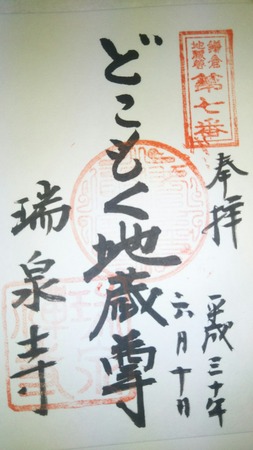 鎌倉
地蔵尊
第七番
奉拝
平成三十年
六月十日
どこもく地蔵尊
瑞泉寺